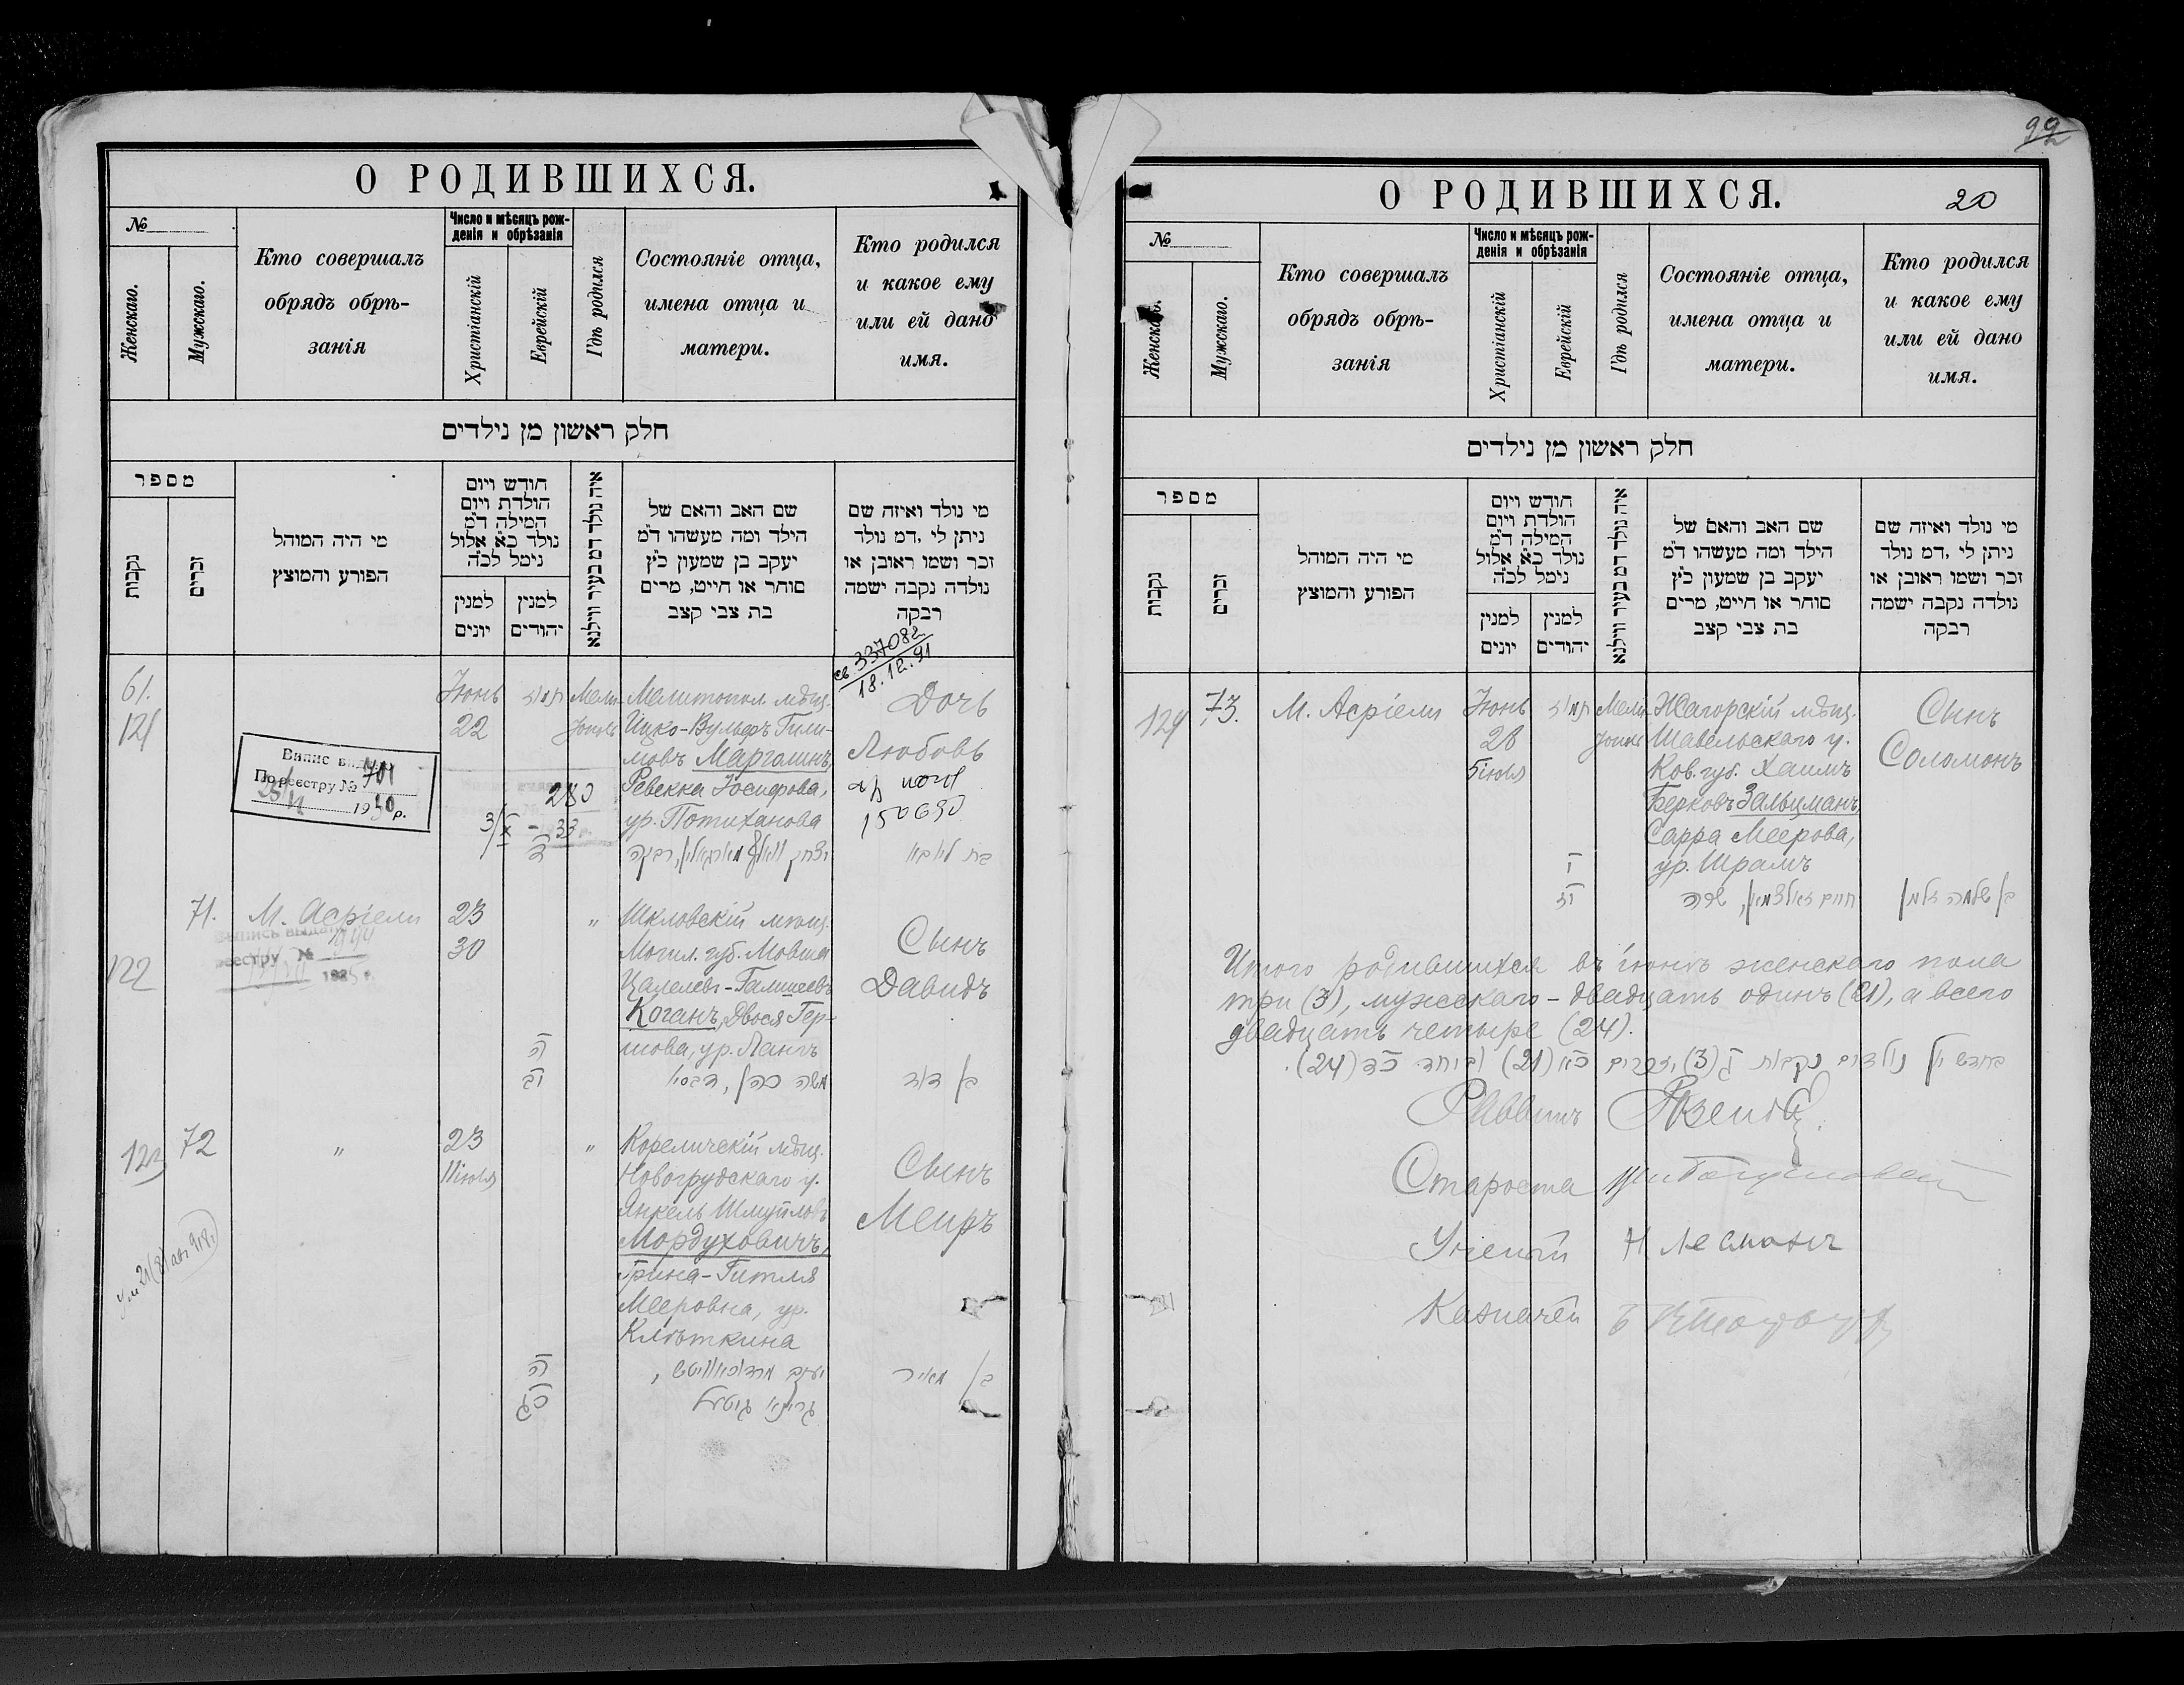 О РОДИВШИХСЯ.
№
Женскаго.
Мужскаго.
Кто совершалъ
обрядъ обрѣ-
занія
Число и мѣсяцъ рож-
денія и обрѣзанія
Христіанскій
Еврейскій
Гдѣ родился
Состояніе отца,
имена отца и
матери.
Кто родился
и какое ему
или ей дано
имя.
חלק ראשון מן נילדים
מספר
נקבות
זכרים
מי היה המוהל
הפורע והמוצץ
חודש ויום
הולדת ויום
המילה ד״מ
נולד כ״א אלול
נימל לכ״ה
למנין
יונים
למנין
יהודים
איה נולד דמ בעיר ווילנא
שם האב והאם של
הילד ומה מעשהו ד״מ
יעקב בן שמעון כ״ץ
סוחר או חייט, מרים
בת צבי קצב
מי נולד ואיזה שם
ניתן לי ,דמ נולד
זכר ושמו ראובן או
נולדה נקבה ישמה
רבקה
св. 337082
18.12.91
61.
121
Іюнь
22
תמוז
Мели-
тополь
Мелитопол. мѣщ.
Ицко-Вульфъ Гили-
мовъ Марголинъ,
Ревекка Іосифова,
ур. Потиханова
Дочь
Любовь
150630
Випис видано
По реєстру № 701
25/VI 1930 р.
280
3/X - 33
בת ליובא
71.
122
М. Асріели
23
30
"
Шкловскій мѣщ.
Могил. губ. Мовша
Цалелевъ-Галишеевъ
Коганъ, Двося Гер-
шова, ур. Лангъ
Сынъ
Давидъ
משה כהן,
בן דוד
72
123
"
23
11 іюля
"
Кореличскій мѣщ.
Новогрудскаго у.
Янкель Шмуйловъ
Мордуховичъ,
Грина-Гитля
Мееровна, ур.
Клѣткина
Сынъ
Меиръ
יעקב מרדכאוויטש,
גרונא גיטעל
בן מאיר
92
О РОДИВШИХСЯ.
20
№
Женскаго.
Мужскаго.
Кто совершалъ
обрядъ обрѣ-
занія
Число и мѣсяцъ рож-
денія и обрѣзанія
Христіанскій
Еврейскій
Гдѣ родился
Состояніе отца,
имена отца и
матери.
Кто родился
и какое ему
или ей дано
имя.
חלק ראשון מן נילדים
מספר
נקבות
זכרים
מי היה המוהל
הפורע והמוצץ
חודש ויום
הולדת ויום
המילה ד״מ
נולד כ״א אלול
נימל לכ״ה
למנין
יונים
למנין
יהודים
איה נולד דמ בעיר ווילנא
שם האב והאם של
הילד ומה מעשהו ד״מ
יעקב בן שמעון כ״ץ
סוחר או חייט, מרים
בת צבי קצב
מי נולד ואיזה שם
ניתן לי ,דמ נולד
זכר ושמו ראובן או
נולדה נקבה ישמה
רבקה
124
73.
М. Асріели
Іюнь
28
5 іюля
תמוז
Мели-
тополь
Жагорскій мѣщ.
Шавельскаго у.
Ков. губ. Хаимъ
Берковъ Зальцманъ,
Сарра Меерова,
ур. Шрамъ
Сынъ
Соломонъ
חיים זאלצמאן, שרה
בן שלמה זלמן
Итого родившихся въ іюнѣ женскаго пола
три (3), мужескаго - двадцать одинъ (21), а всего
двадцать четыре (24).
בחדש יוני נולדים נקבות ג (3) וזכרים כא (21) וביחד כד (24).
Раввинъ
Староста
Ученый Н Лесманъ
Казначей